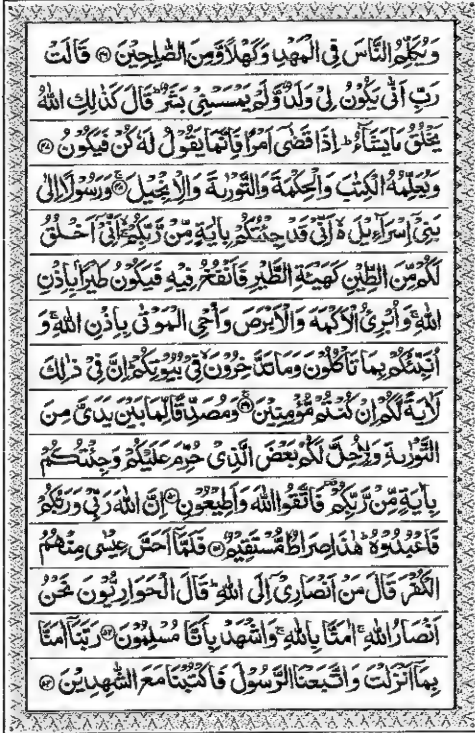 وَيُكَلِّمُ النَّاسَ فِي الْمَهْدِ وَكَهْلًا وَّمِنَ الصّٰلِحِيْنَ ﴿۴۶﴾ قَالَتْ
رَبِّ اَنّٰى يَكُوْنُ لِيْ وَلَدٌ وَّلَمْ يَمْسَسْنِيْ بَشَرٌ ؕ قَالَ كَذٰلِكِ اللّٰهُ
يَخْلُقُ مَا يَشَآءُ ؕ اِذَا قَضٰۤى اَمْرًا فَاِنَّمَا يَقُوْلُ لَهٗ كُنْ فَيَكُوْنُ ﴿۴۷﴾
وَيُعَلِّمُهُ الْكِتٰبَ وَالْحِكْمَةَ وَالتَّوْرٰىةَ وَالْاِنْجِيْلَ ﴿۴۸﴾ وَرَسُوْلًا اِلٰى
بَنِيْۤ اِسْرَآءِيْلَ ۙ اَنِّيْ قَدْ جِئْتُكُمْ بِاٰيَةٍ مِّنْ رَّبِّكُمْ ۙ اَنِّيْۤ اَخْلُقُ
لَكُمْ مِّنَ الطِّيْنِ كَهَيْـَٔةِ الطَّيْرِ فَاَنْفُخُ فِيْهِ فَيَكُوْنُ طَيْرًۢا بِاِذْنِ
اللّٰهِ ۚ وَاُبْرِئُ الْاَكْمَهَ وَالْاَبْرَصَ وَاُحْيِ الْمَوْتٰى بِاِذْنِ اللّٰهِ ۚ وَ
اُنَبِّئُكُمْ بِمَا تَاْكُلُوْنَ وَمَا تَدَّخِرُوْنَ ۙ فِيْ بُيُوْتِكُمْ ؕ اِنَّ فِيْ ذٰلِكَ
لَاٰيَةً لَّكُمْ اِنْ كُنْتُمْ مُّؤْمِنِيْنَ ﴿۴۹﴾ وَمُصَدِّقًا لِّمَا بَيْنَ يَدَيَّ مِنَ
التَّوْرٰىةِ وَلِاُحِلَّ لَكُمْ بَعْضَ الَّذِيْ حُرِّمَ عَلَيْكُمْ وَجِئْتُكُمْ
بِاٰيَةٍ مِّنْ رَّبِّكُمْ ۫ فَاتَّقُوا اللّٰهَ وَاَطِيْعُوْنِ ﴿۵۰﴾ اِنَّ اللّٰهَ رَبِّيْ وَرَبُّكُمْ
فَاعْبُدُوْهُ ؕ هٰذَا صِرَاطٌ مُّسْتَقِيْمٌ ﴿۵۱﴾ فَلَمَّاۤ اَحَسَّ عِيْسٰى مِنْهُمُ
الْكُفْرَ قَالَ مَنْ اَنْصَارِيْۤ اِلَى اللّٰهِ ؕ قَالَ الْحَوَارِيُّوْنَ نَحْنُ
اَنْصَارُ اللّٰهِ ۚ اٰمَنَّا بِاللّٰهِ ۚ وَاشْهَدْ بِاَنَّا مُسْلِمُوْنَ ﴿۵۲﴾ رَبَّنَاۤ اٰمَنَّا
بِمَاۤ اَنْزَلْتَ وَاتَّبَعْنَا الرَّسُوْلَ فَاكْتُبْنَا مَعَ الشّٰهِدِيْنَ ﴿۵۳﴾